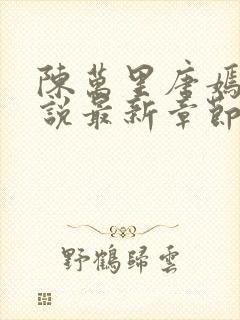 陳萬里唐嫣
說最新章節
野鶴歸雲